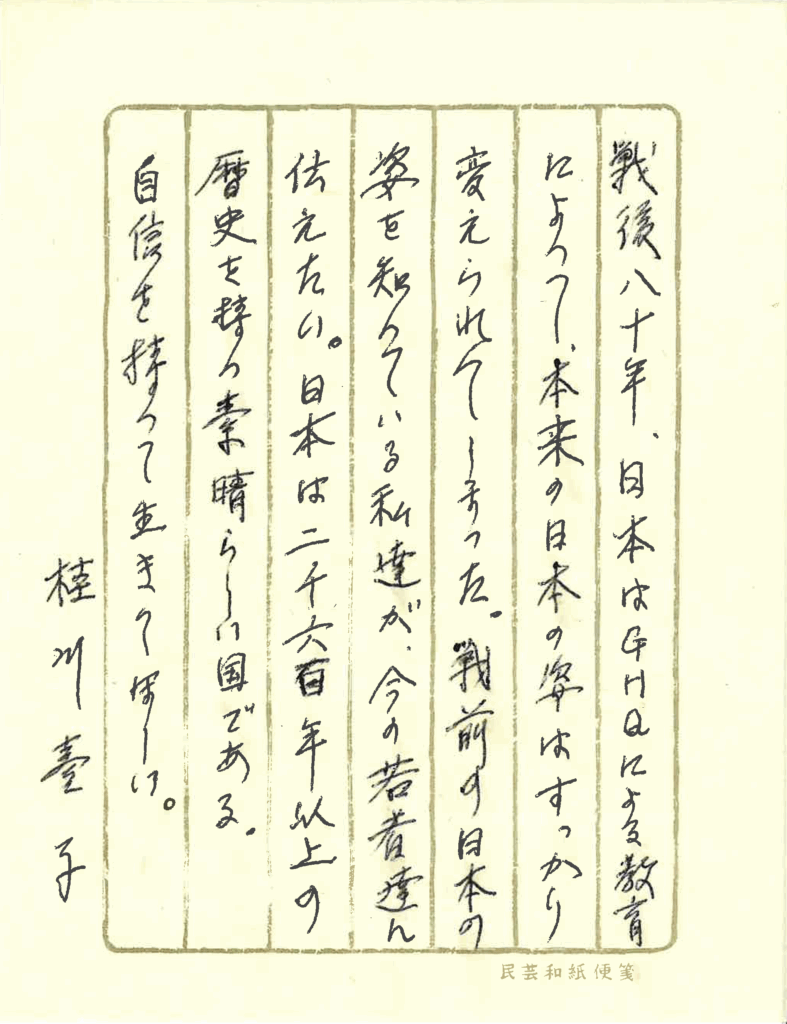 戦後八十年、日本はGHQによる教育
によって、本来の日本の姿はすっかり
変えられてしまった。戦前の日本の
姿を知っている私達が、今の若者達に
伝えたい。日本は二千六百年以上の
歴史を持つ素晴らしい国である。
自信を持って生きてほしい。
桂川子
民芸和紙便箋